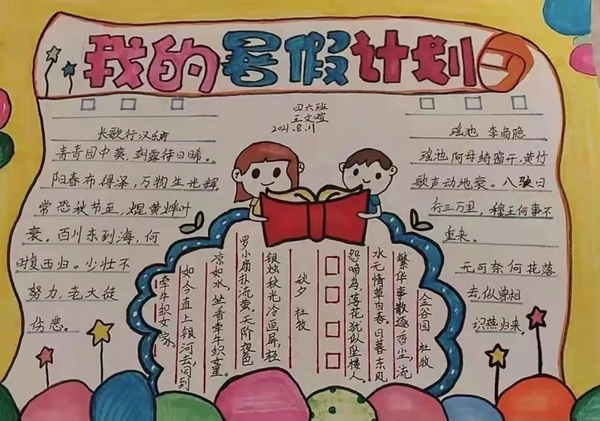 我的暑假计划
四六班
王文暄
2021.8.11
长歌行汉乐府
青青园中葵,朝露待日晞。
阳春布得泽,万物生光辉
常恐秋节至,焜黄华叶
衰。百川东到海,何
时复西归。少壮不
努力,老大徒
伤悲。
瑶池 李商隐
瑶池阿母绮窗开,黄竹
歌声动地哀。八骏日
行三万里,穆王何事不
重来。
无可奈何花落
去,似曾相
识燕归来。
金谷园 杜牧
繁华事散逐香尘,流
水无情草自春。日暮东风
怨啼鸟,落花犹似坠楼人。
秋夕 杜牧
银烛秋光冷画屏,轻
罗小扇扑流萤。天阶夜色
凉如水,坐看牵牛织女星。
如今直上银河去同到
牵牛织女家。